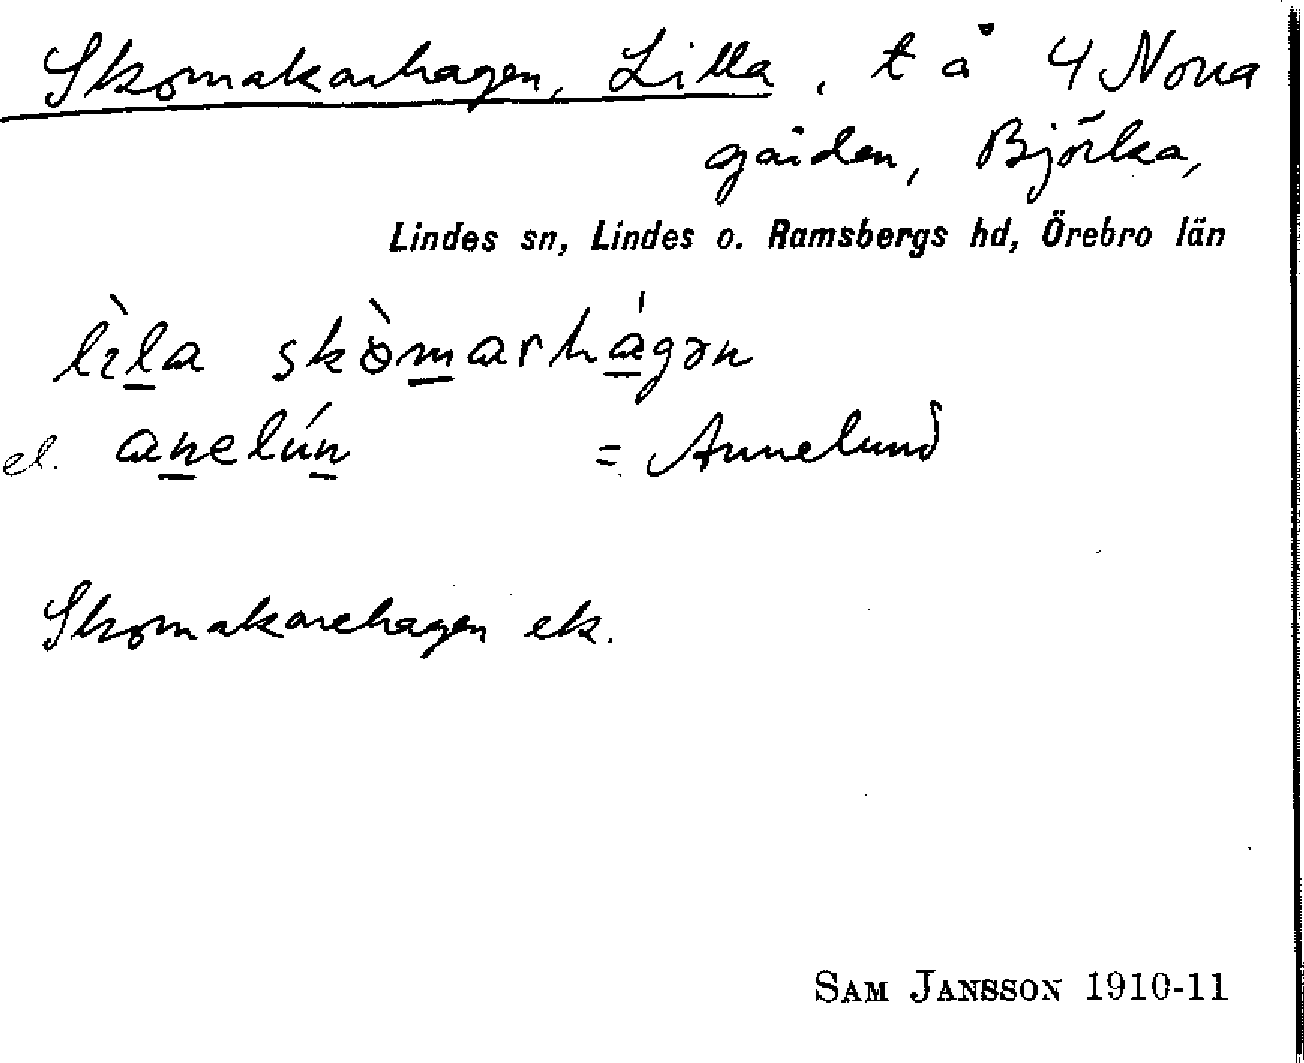 Skomakarhagen, Lilla, t å 4 Norra
gården, Björka,
Lindes sn, Lindes o. Ramsbergs hd, Örebro län
lìla skòmarhágən
el. anelún = Annelund
Skomakarehagen ek.
SAM JANSSON 1910-11